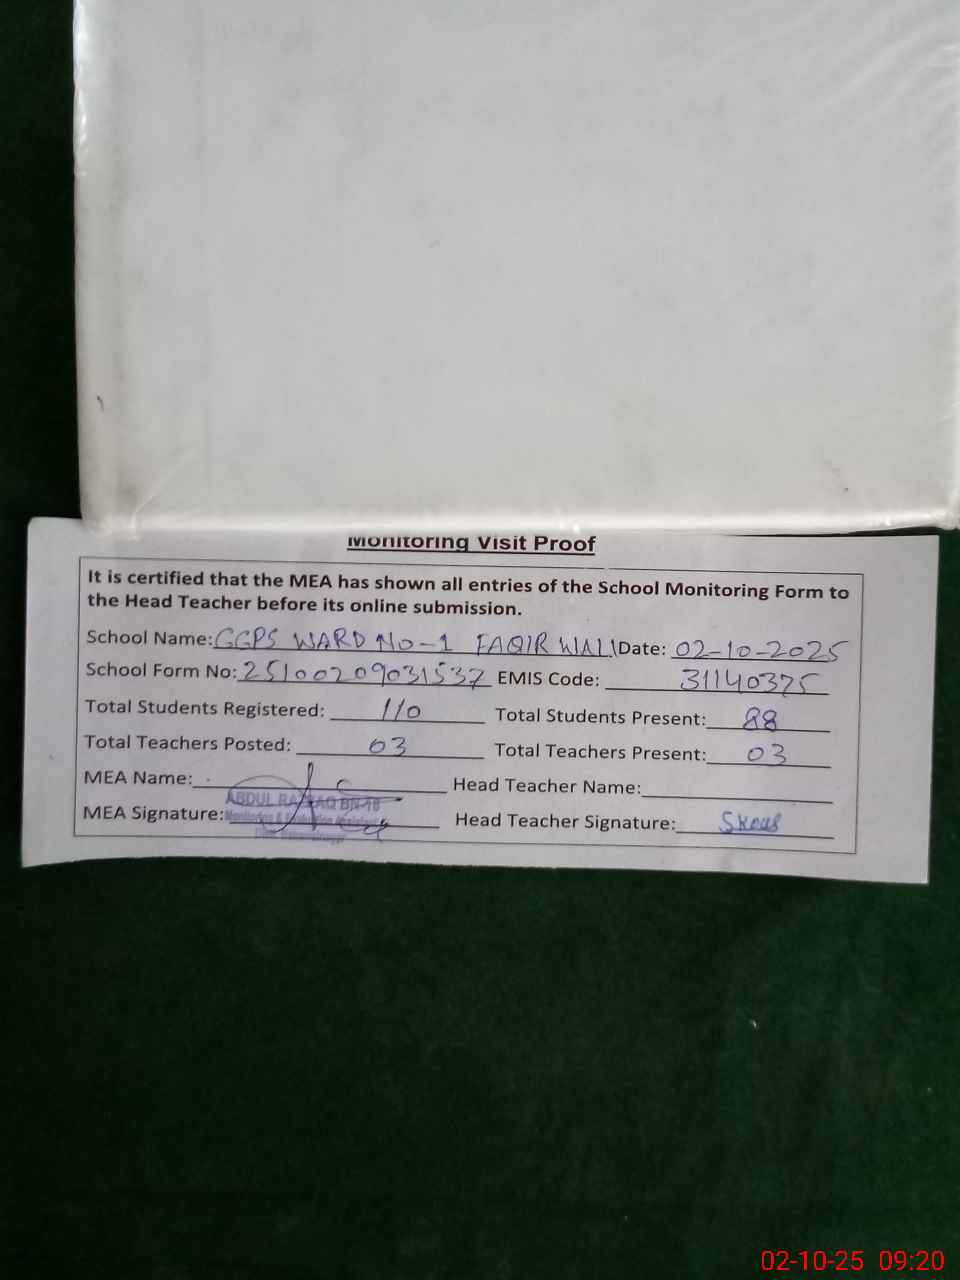 Monitoring Visit Proof
It is certified that the MEA has shown all entries of the School Monitoring Form to
the Head Teacher before its online submission.
School Name: GGPS WARD No-1 FAQIR WALI Date: 02-10-2025
School Form No: 25100209031537 EMIS Code: 31140375
Total Students Registered: 110 Total Students Present: 88
Total Teachers Posted: 03 Total Teachers Present: 03
MEA Name: Head Teacher Name:
ABDUL RAZZAQ BN-18
MEA Signature: Monitoring & Evaluation Assistant Head Teacher Signature:
02-10-25 09:20